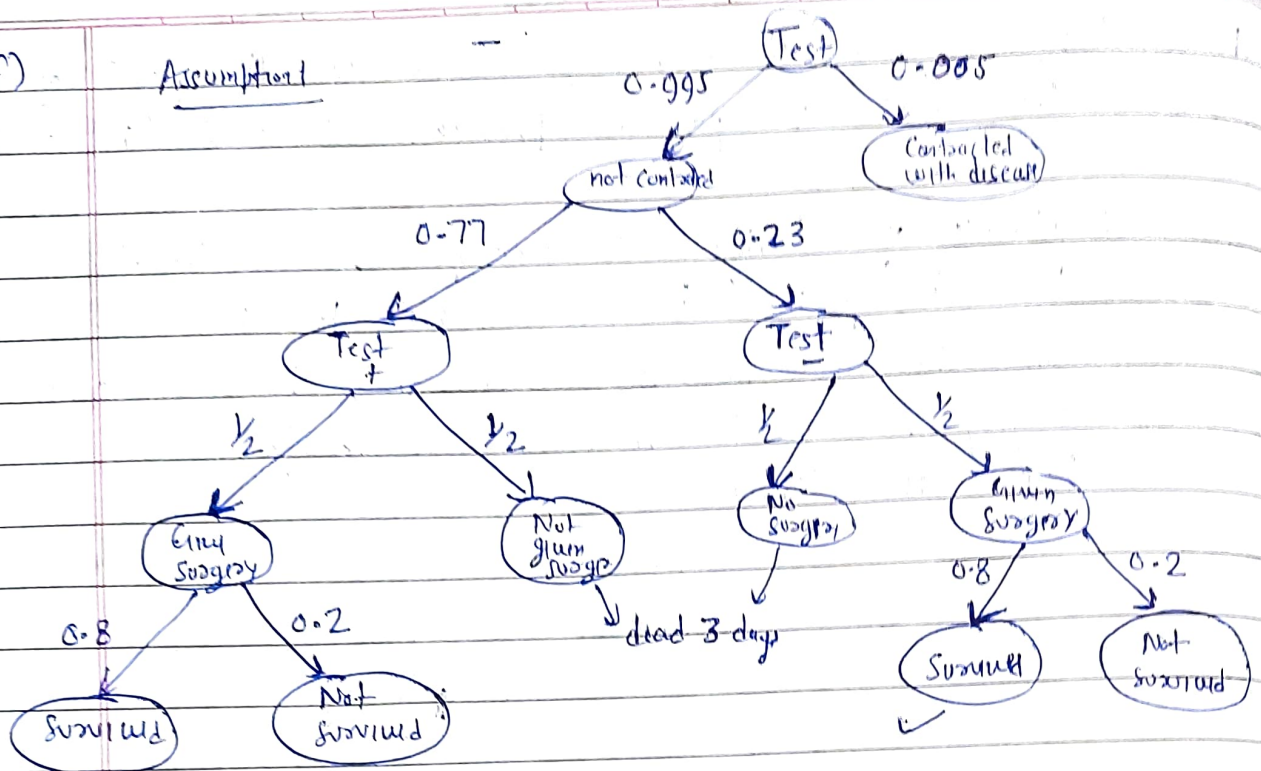 Assumption 1
Test
0.995
0.005
not contracted
Contracted
with disease
0.77
0.23
Test
+
Test
-
1/2
1/2
1/2
1/2
surgery
Not
given
No
surgery
Given
surgery
0.8
0.2
0.8
0.2
dead 3 days
survived
Not
survived
survived
Not
survived